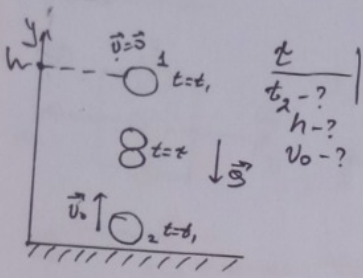 y
h
v⃗=0⃗ 1
t=t₁
t=τ
g⃗
v⃗₀
2 t=t₁
τ
t₂-?
h-?
v₀-?